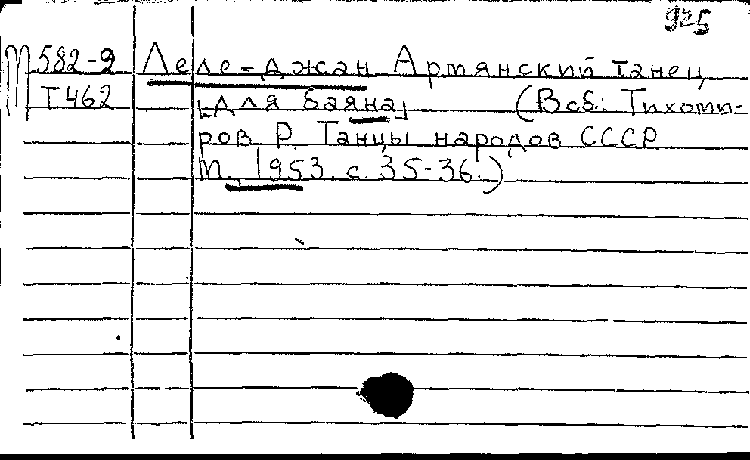 925
М 582-2 Леле-джан Армянский танец
Т462 [для баяна] (В сб: Тихоми-
ров Р. Танцы народов СССР
М., 1953. с. 35-36.)